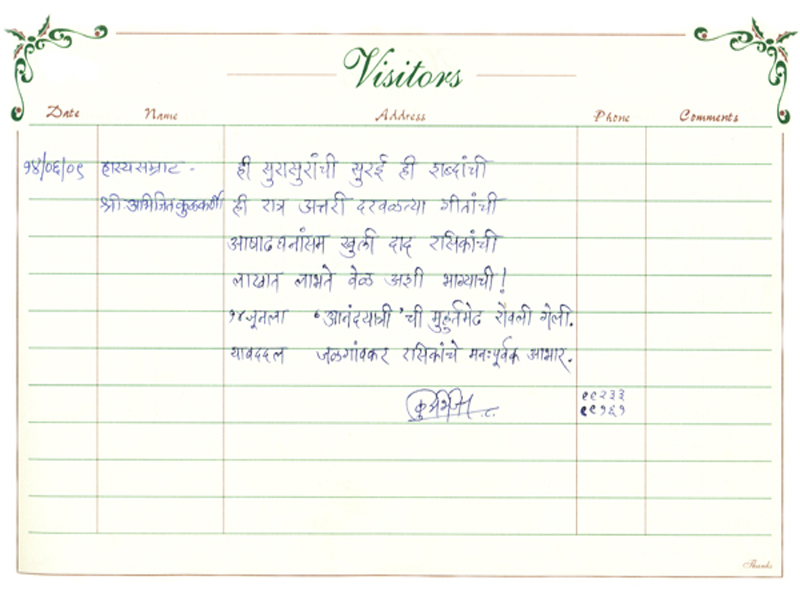 Visitors
Date Name Address Phone Comments
१४/०६/०९ हास्यसम्राट - ही सुरासुरांची सुरई ही शब्दांची
श्री. अभिजित कुळकर्णी ही रात्र अत्तरी दरवळत्या गीतांची
आषाढघनांसम खुली दाद रसिकांची
लाखात लाभते वेळ अशी भाग्याची!
१४ जूनला 'आनंदयात्री' ची मुहूर्तमेढ रोवली गेली.
याबद्दल जळगांवकर रसिकांचे मनःपूर्वक आभार.
९९२३३
९९१६१
Thanks